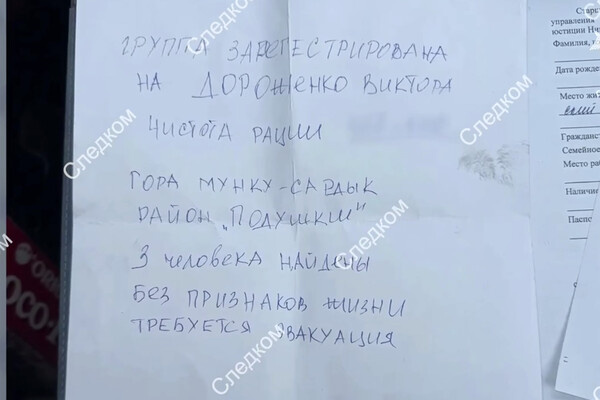 ГРУППА ЗАРЕГЕСТРИРОВАНА
НА ДОРОЖЕНКО ВИКТОРА
ЧИСТОТА РАЦИИ
ГОРА МУНКУ-САРДЫК
РАЙОН „ПОДУШКИ"
3 человека НАЙДЕНЫ
БЕЗ ПРИЗНАКОВ ЖИЗНИ
ТРЕБУЕТСЯ ЭВАКУАЦИЯ
Следком
Следком
Следком
Следком
Следком
Следком
Старс
управления
юстиции
Фамилия,
Дата рожде
Место жи
Гражданст
Семейное
Место ра
Наличие
Паспо